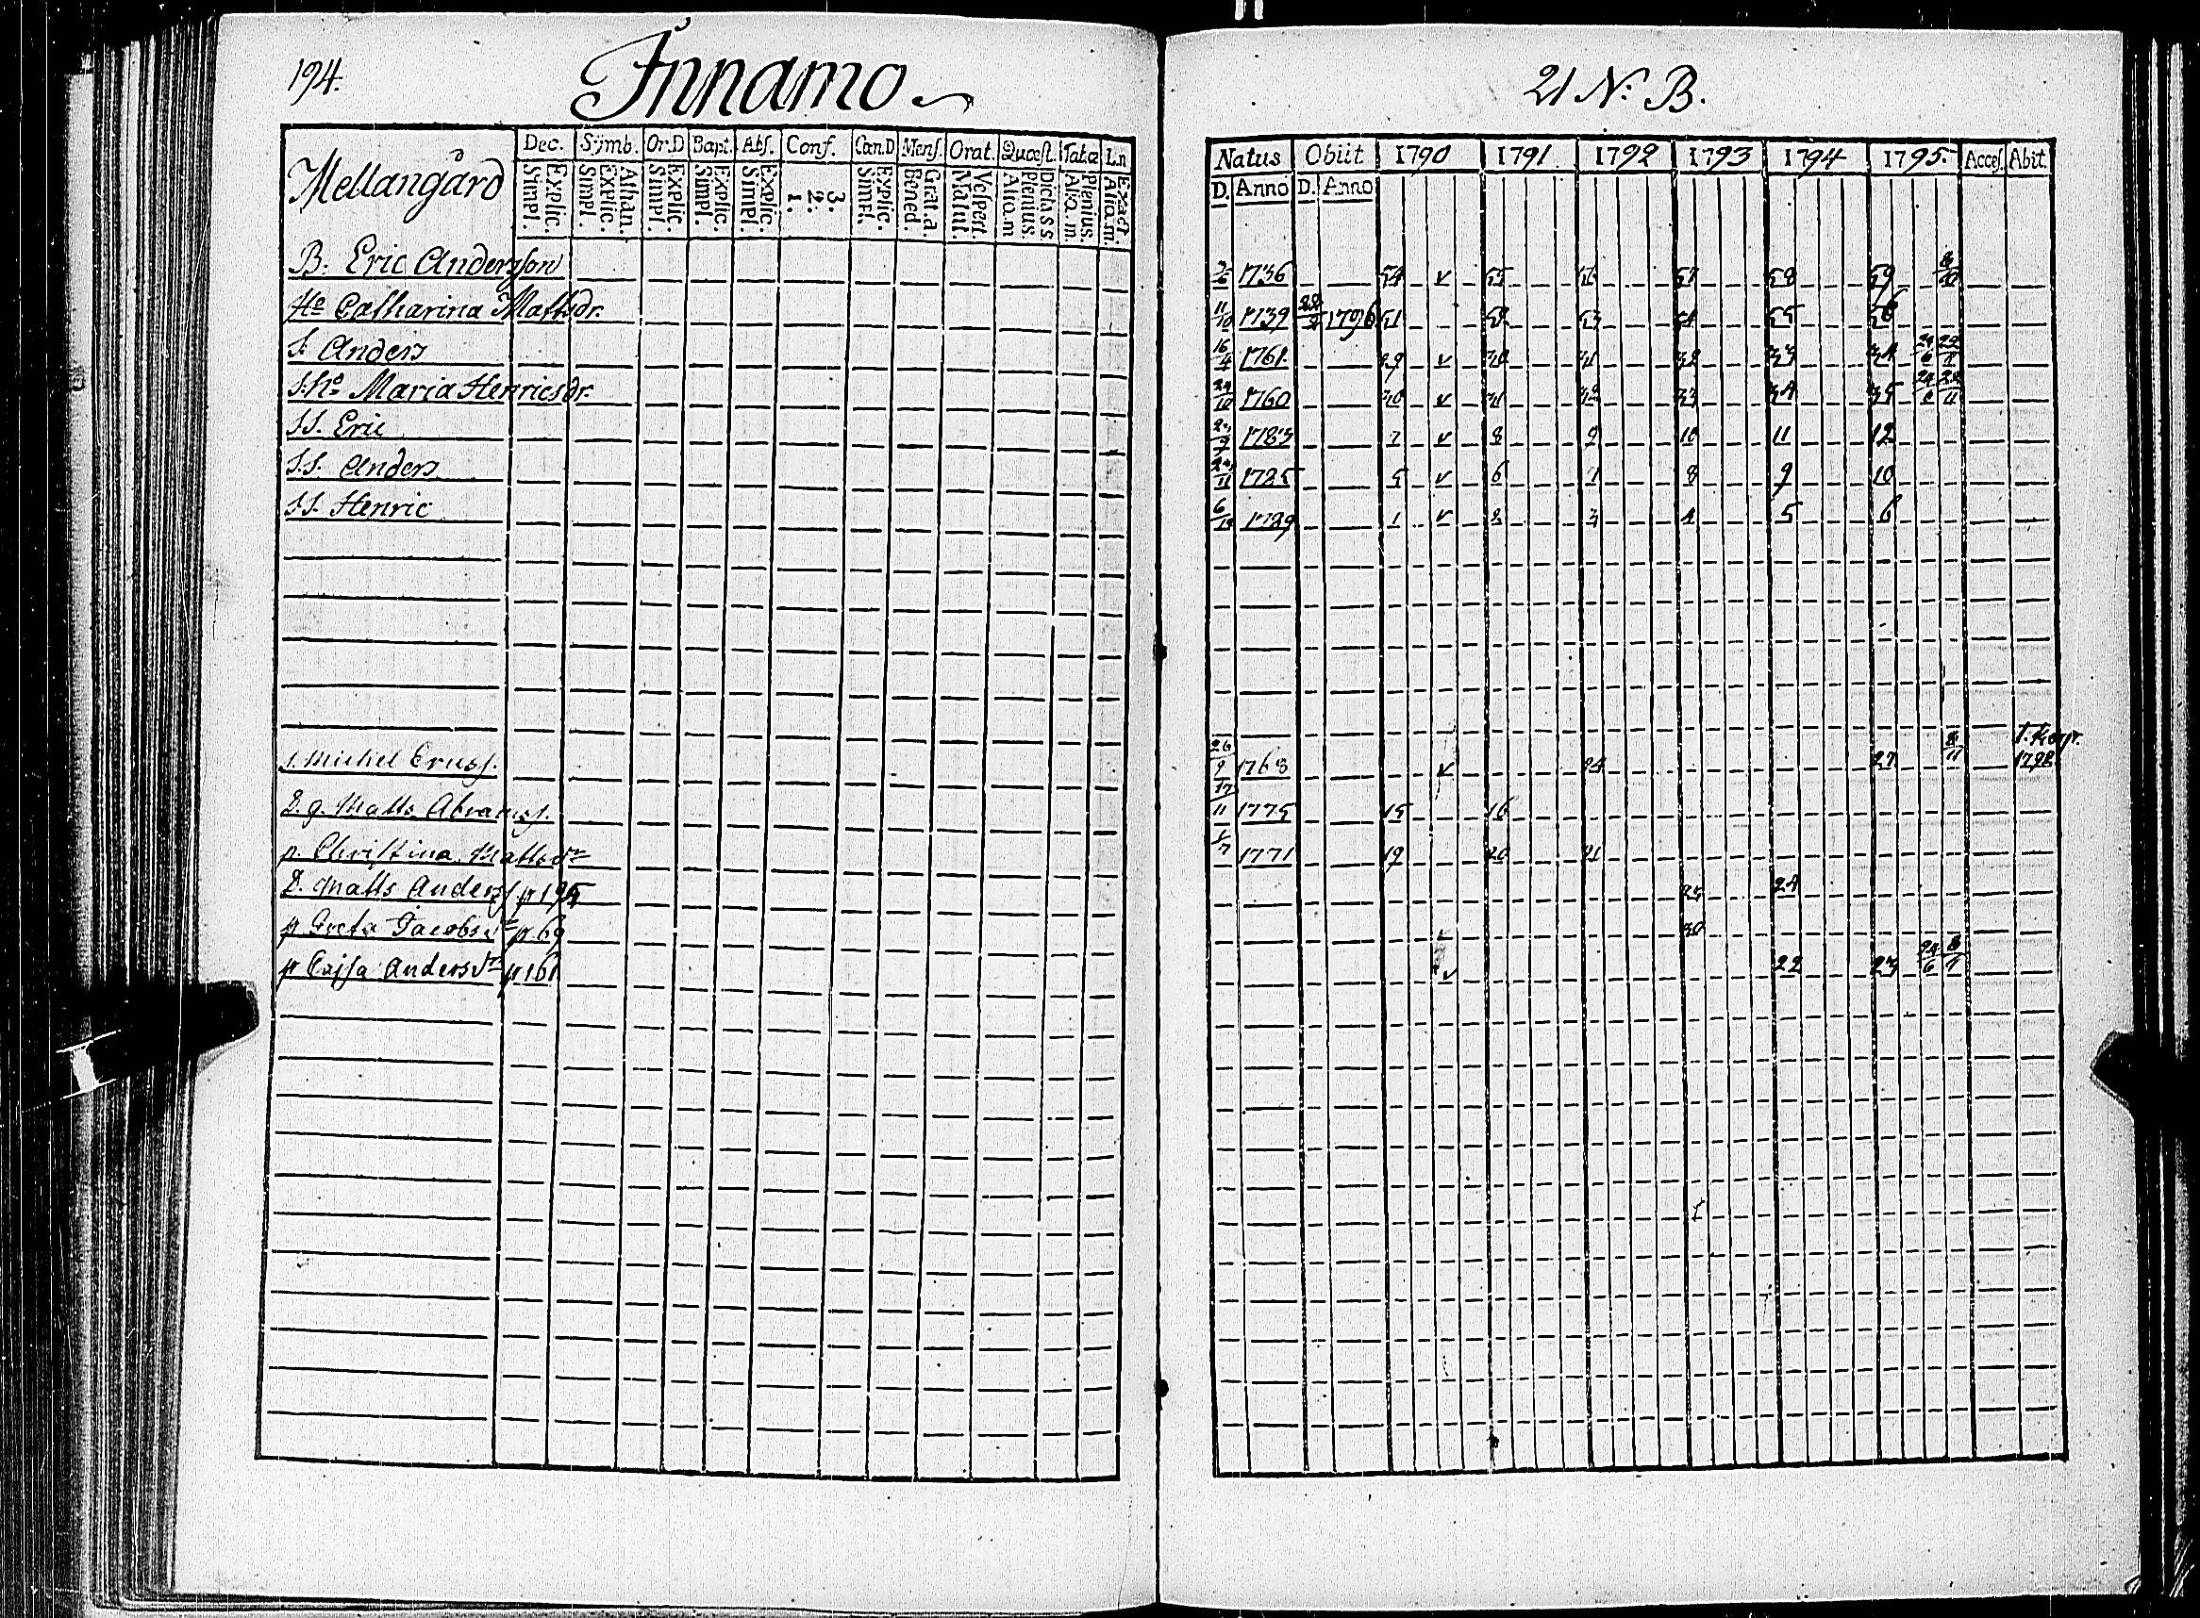 194.
Innamo
Mellangård
Dec. Symb. Or.D Bapt. Abs. Conf. Cœn.D Mens. Orat. Quæst. Tabæ Ln
Explic. Simpl. Athan. Explic. Simpl. Explic. Simpl. Explic. Simpl. Explic. Simpl. 3. 2. 1. Explic. Simpl. Grat.a. Bened. Vespert. Matut. Dicta s s. Plenius. Aliq.m Plenius. Aliq.m. Exact. Aliq.m.
B. Eric Andersson
He Catharina Mattsdr.
S. Anders
S.he Maria Henricsdr.
S.S. Eric
S.S. Anders
S.S. Henric
s. Michel Ericss.
D.g. Matts Abramss.
p. Christina Mattsdr
D. Matts Anderss p 195
p Greta Jacobsdr p. 69
p Cajsa Andersdr p 161
21 N: B.
Natus Obiit 1790 1791 1792 1793 1794 1795. Access. Abit.
D. Anno D. Anno
1736 54 v 55 57 58 59
11/10 1739 1796 51 53 54 55 56
16/4 1761 29 v 30 31 32 33 34
24/10 1760 30 v 31 32 33 34 35
1783 7 v 8 9 10 11 12
1785 5 v 6 7 8 9 10
6/12 1789 1 v 2 3 4 5 6
26/9 1768 v 24 27 1792
17/11 1775 15 16
1771 19 20 21
23 24
30
v 22 23 24/6